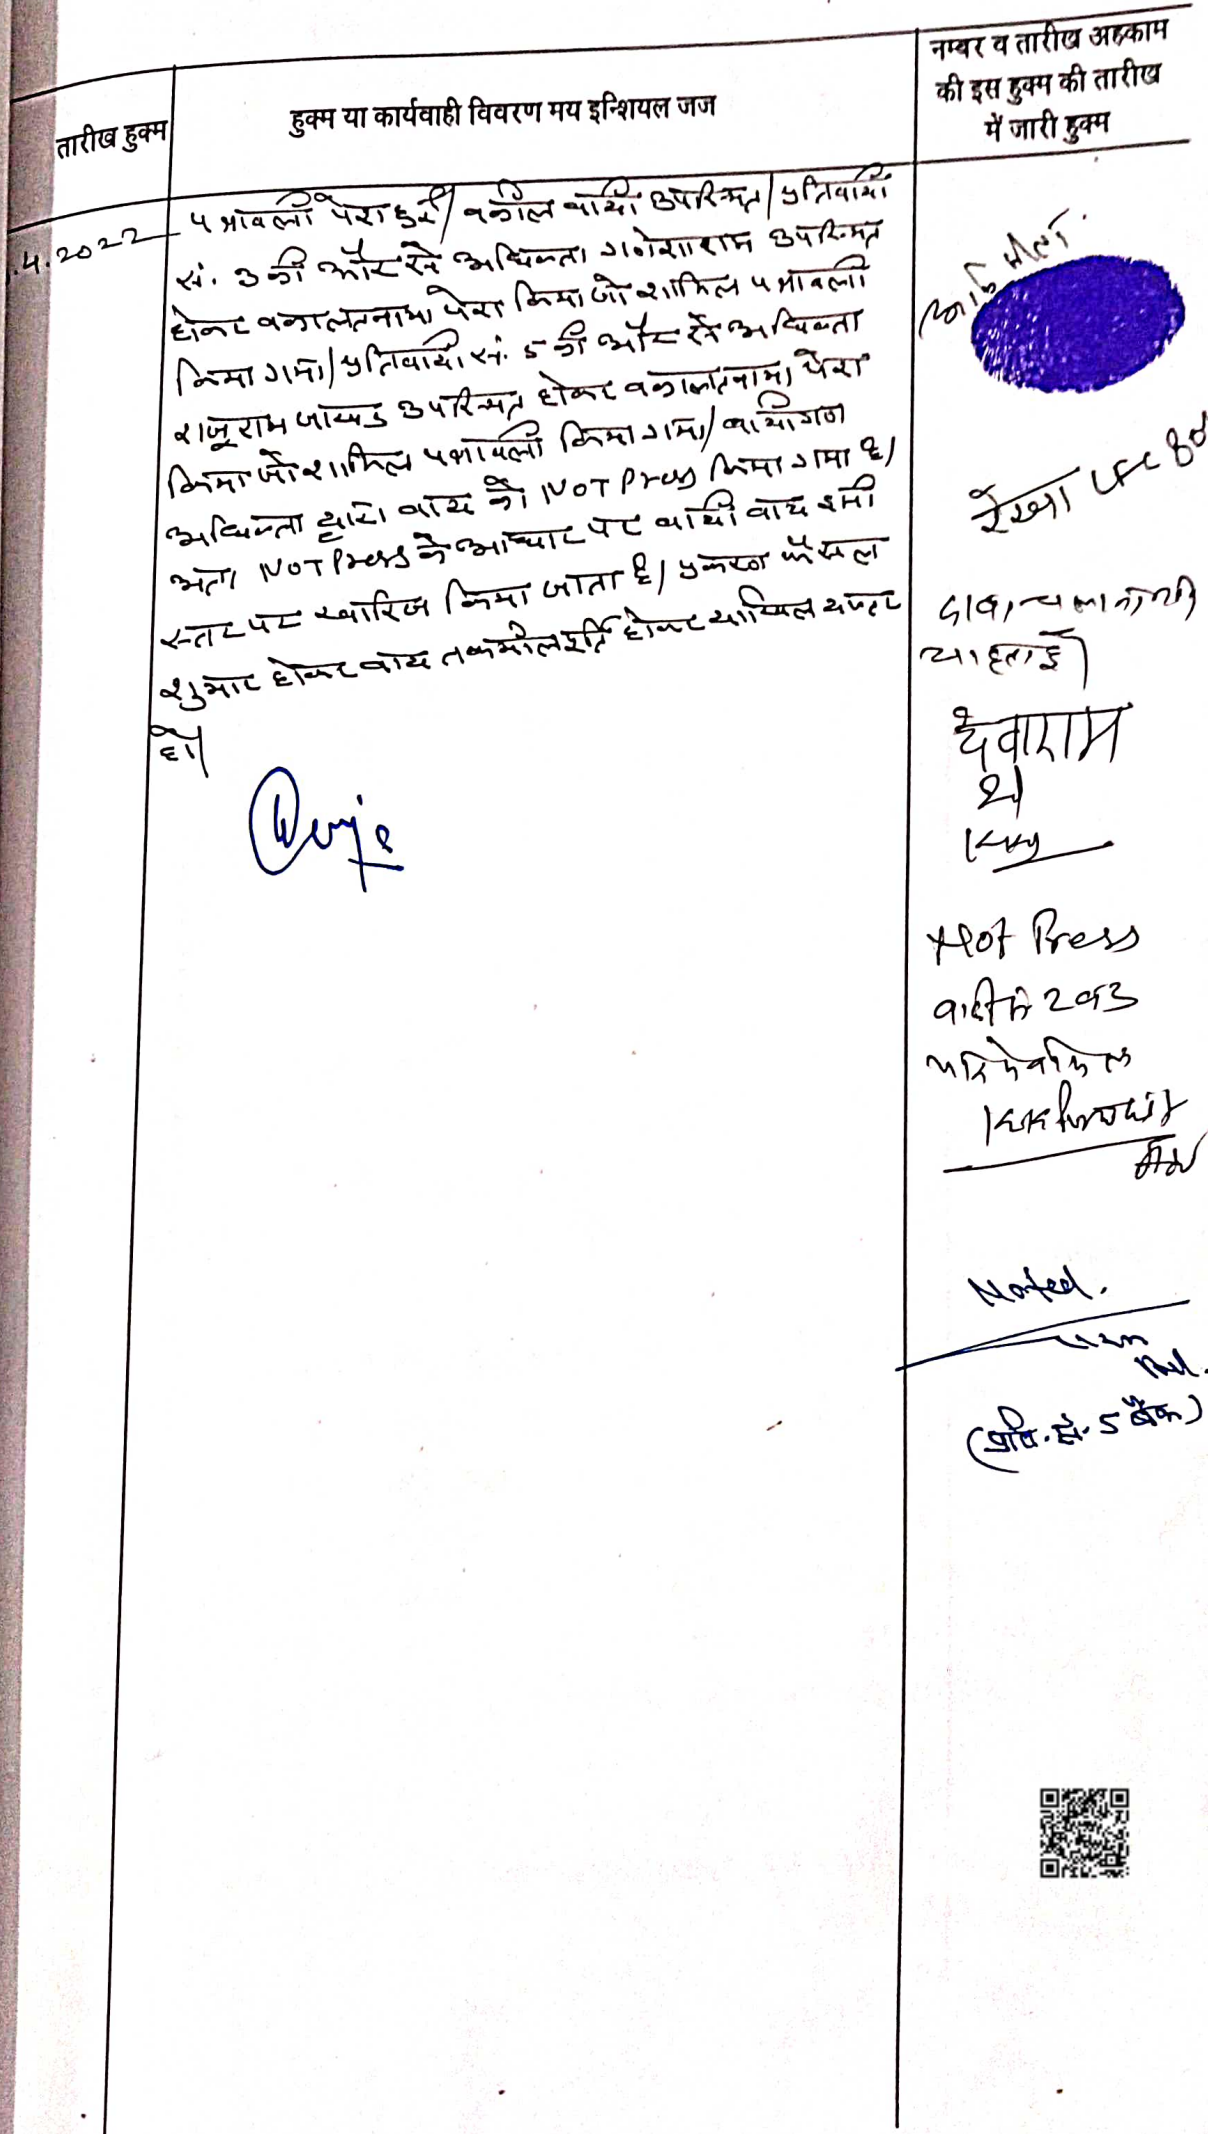 तारीख हुक्म
हुक्म या कार्यवाही विवरण मय इन्शियल जज
नम्बर व तारीख अहकाम
की इस हुक्म की तारीख
में जारी हुक्म
.4.2022
पत्रावली पेश हुई। वकील वादी उपस्थित। प्रतिवादी
सं. 3 की और से अधिवक्ता गणेशाराम उपस्थित
होकर वकालतनामा पेश किया जो शामिल पत्रावली
किया गया। प्रतिवादी सं. 5 की और से अधिवक्ता
राजूराम जाखड़ उपस्थित होकर वकालतनामा पेश
किया जो शामिल पत्रावली किया गया। वादीगण
अधिवक्ता द्वारा वाद को NOT Press किया गया है।
अतः NOT Press के आधार पर वादी वाद इसी
स्तर पर खारिज किया जाता है। प्रकरण फैसल
शुमार होकर बाद तकमील पूर्ति होकर दाखिल दफ्तर
हो।
रेखा
दावा चलाना नहीं
चाहता हूँ
देवाराम
Not Press
वादी 2 व 3
Noted.
(प्रति. सं. 5 बैंक)